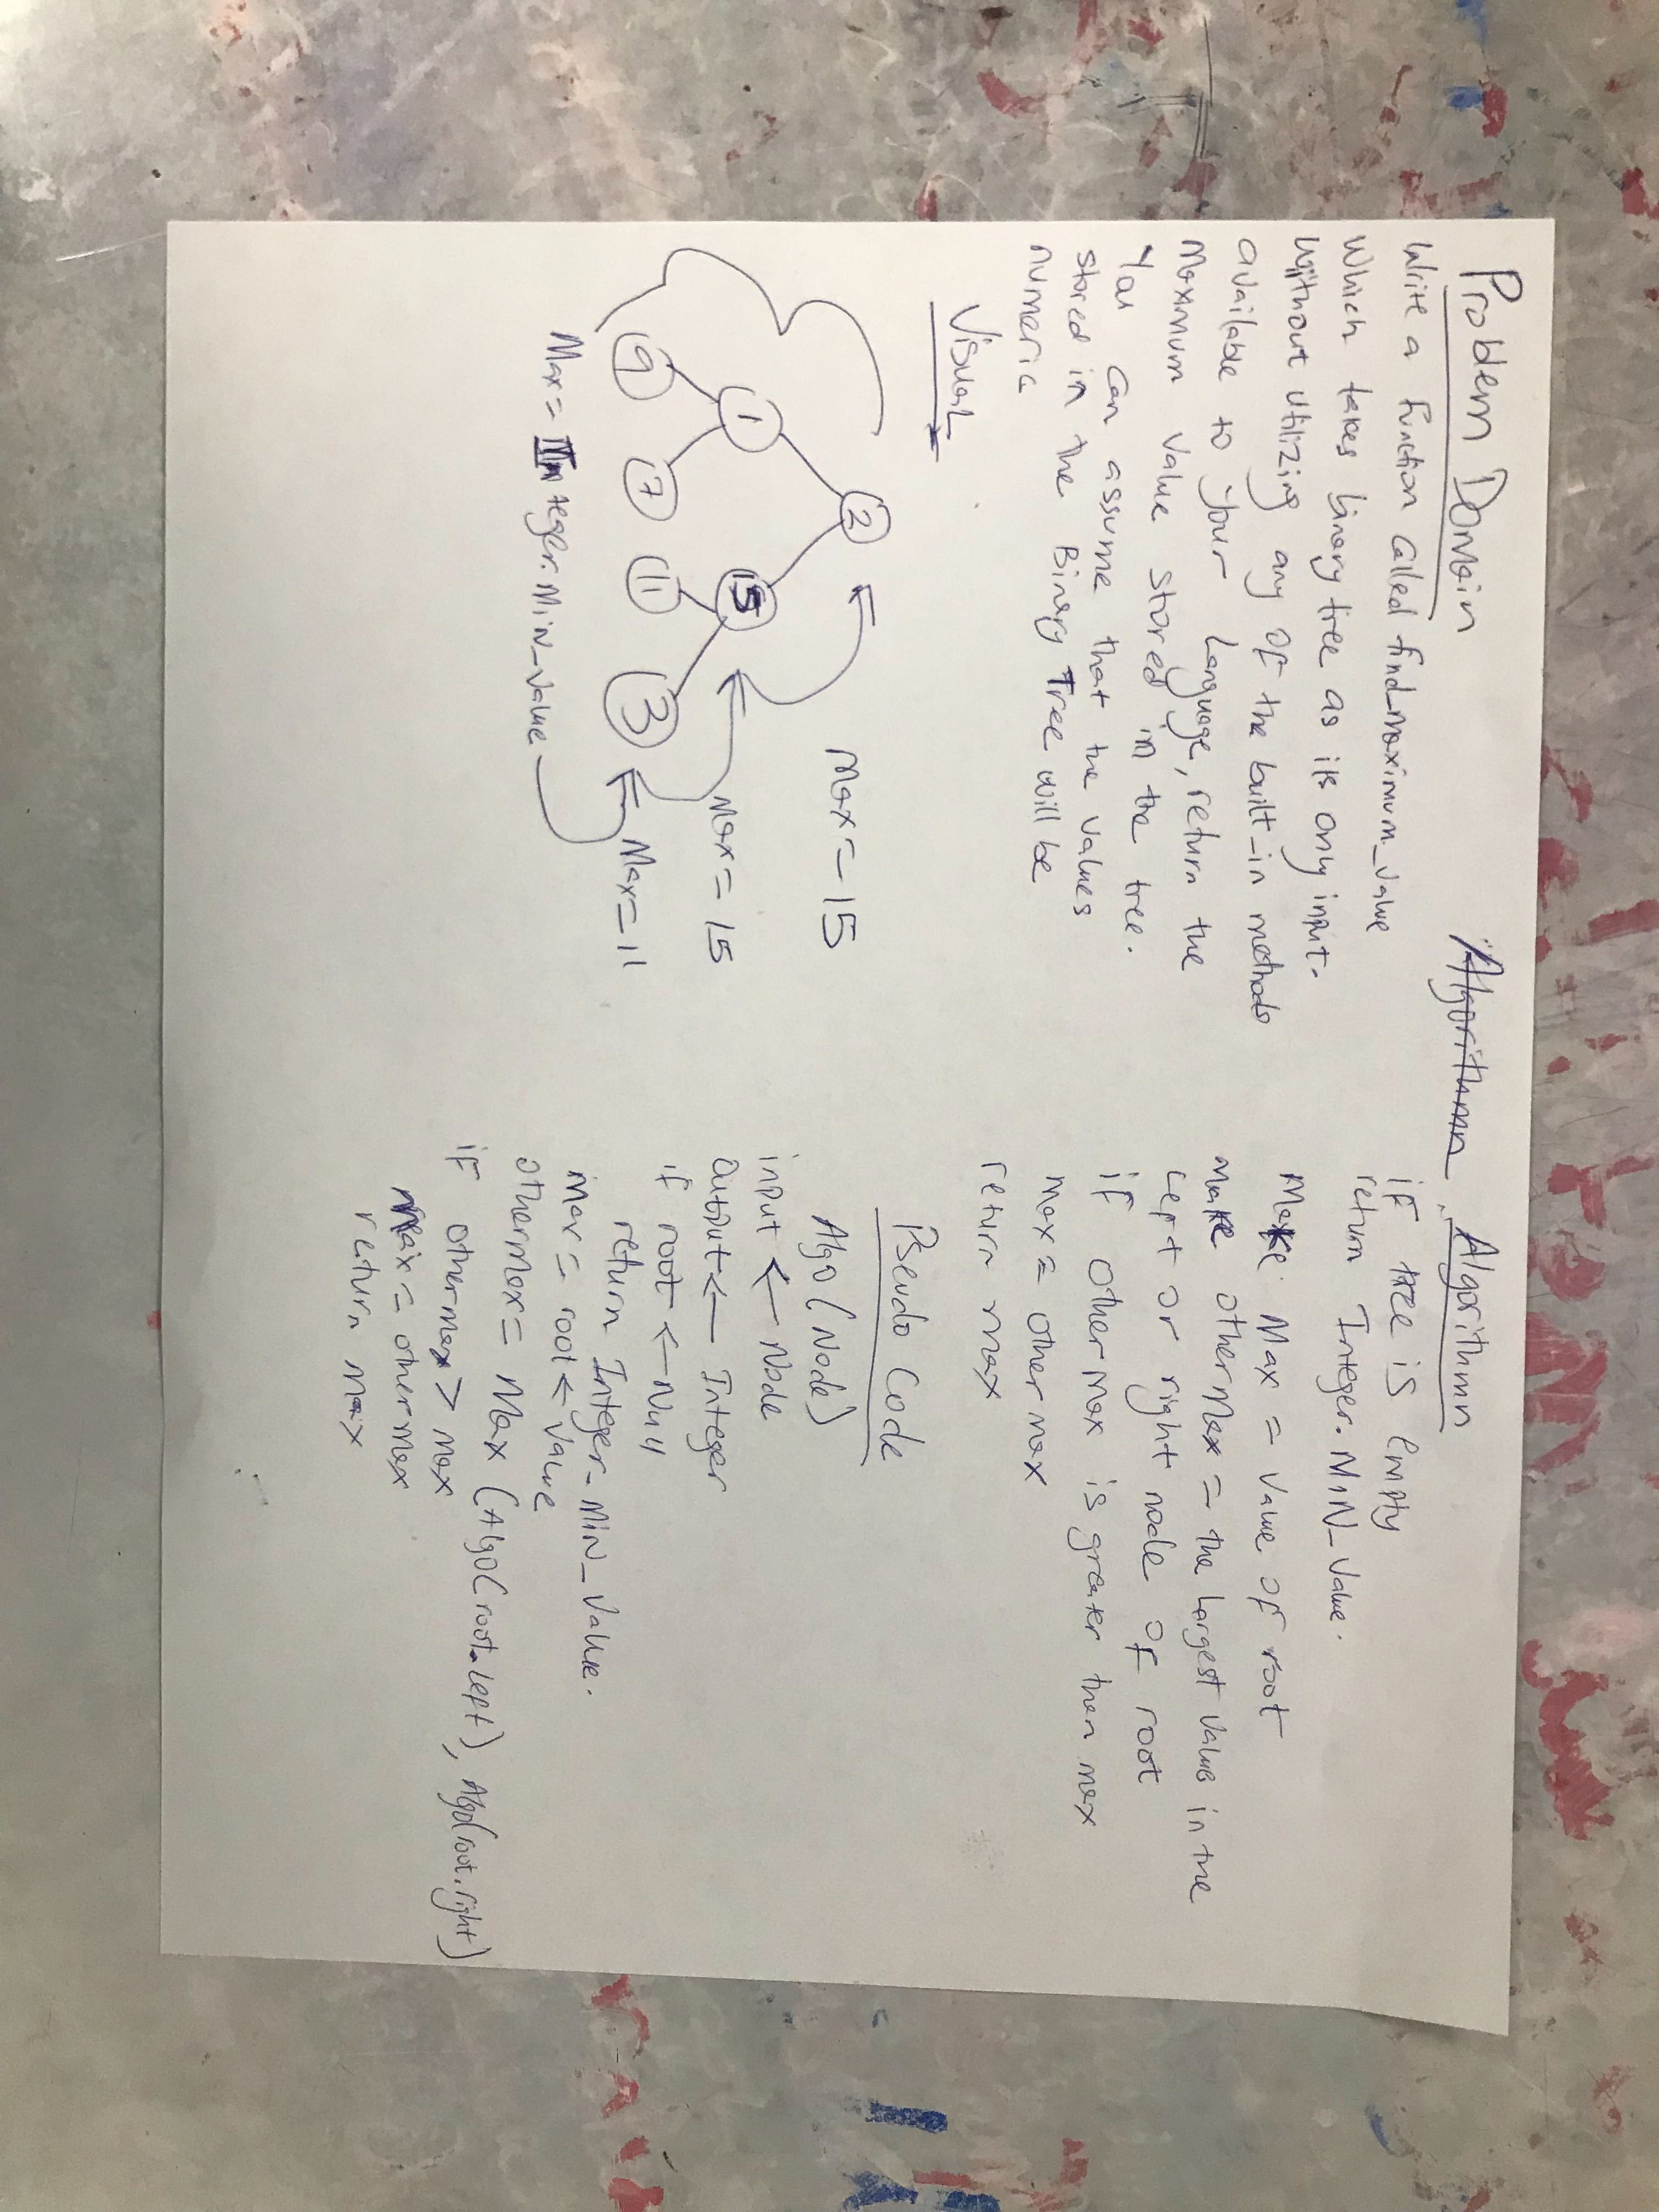 Problem Domain
Write a function called find_maximum_value
which takes binary tree as its only input.
Without utilizing any of the built-in methods
available to your Language, return the
Maximum value stored in the tree.
You can assume that the values
stored in the Binary Tree will be
numeric
Visual
2
1
15
9
7
11
3
Max = 15
Max = 15
Max = 11
Max = Integer.MiN_value
Algorithmn
Algorithmn
if tree is empty
return Integer.MiN_Value.
Make Max = Value of root
make otherMax = the Largest value in the
Left or right node of root
if otherMax is greater then max
max = othermax
return max
Pseudo Code
Algo(Node)
input ← Node
output ← Integer
if root ← Null
return Integer_MiN_Value.
max = root ← Value
otherMax = Max (Algo(root.Left), Algo(root.right)
if othermax > max
max = othermax
return max